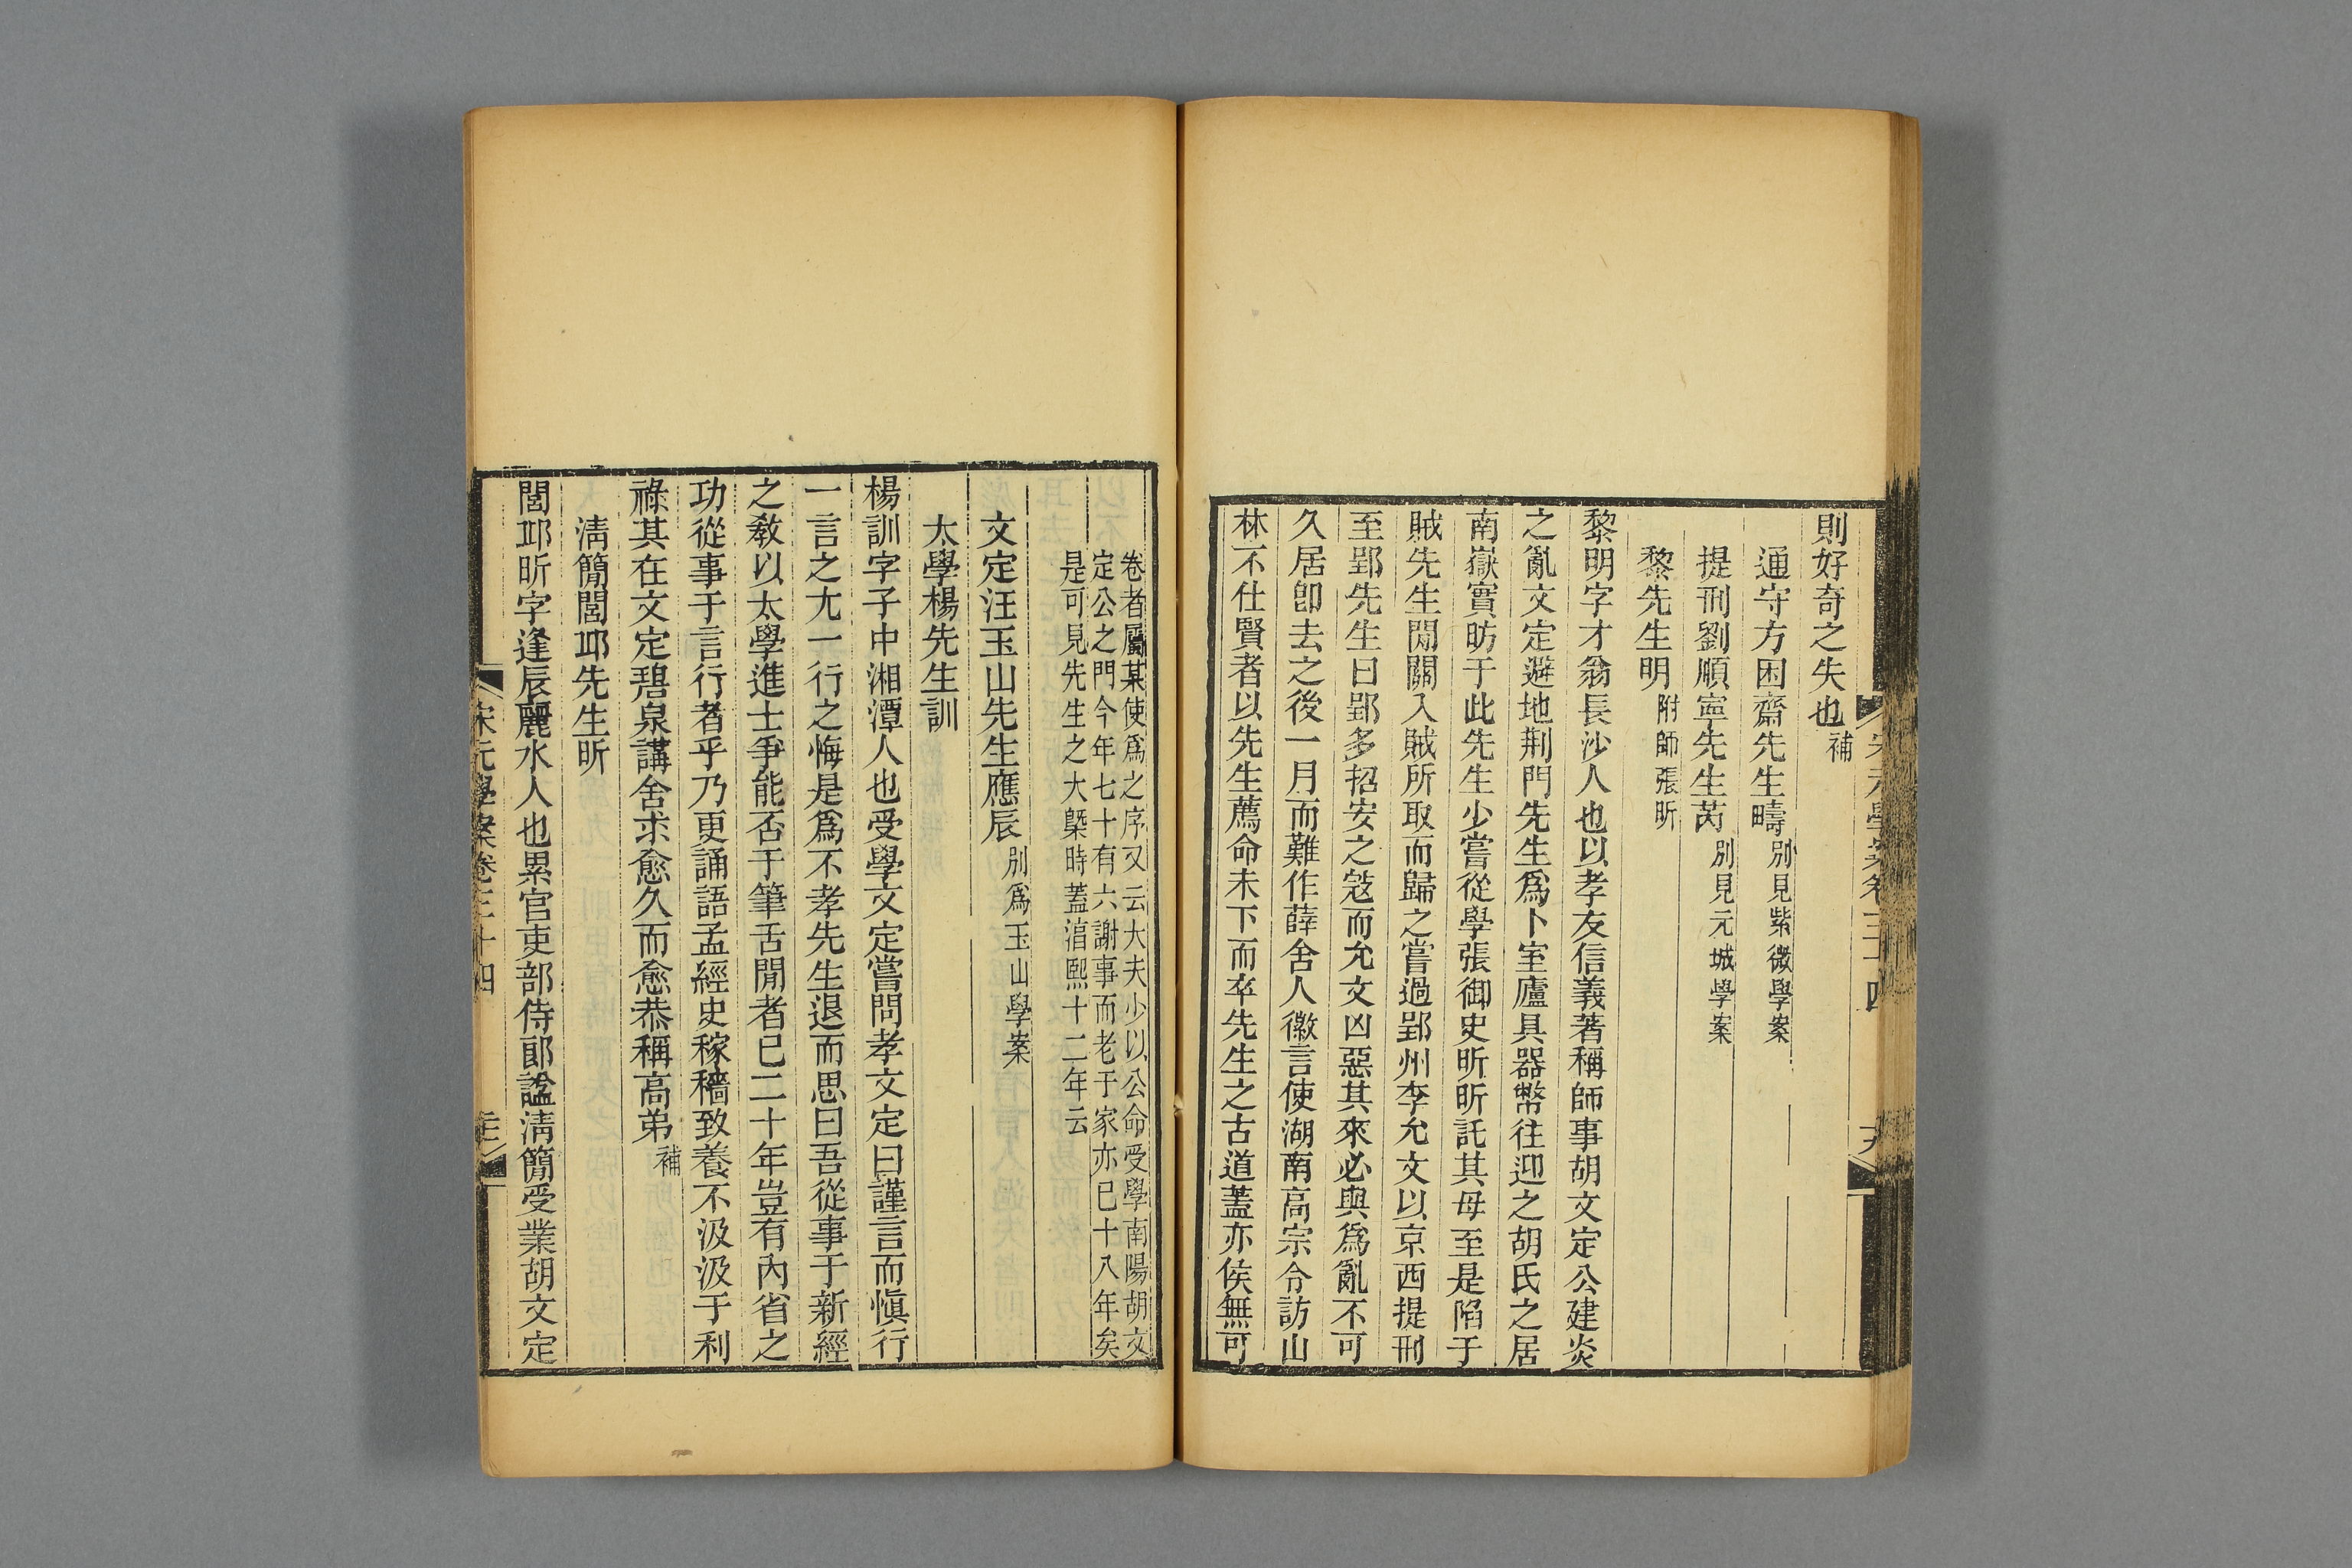 則好奇之失也補
通守方困齋先生疇別見紫微學案
提刑劉順寧先生芮別見元城學案
黎先生明附師張昕
黎明字才翁長沙人也以孝友信義著稱師事胡文定公建炎
之亂文定避地荆門先生爲卜室廬具器幣往迎之胡氏之居
南嶽實昉于此先生少嘗從學張御史昕昕託其母至是陷于
賊先生閒關入賊所取而歸之嘗過郢州李允文以京西提刑
至郢先生曰郢多招安之寇而允文凶惡其來必與爲亂不可
久居卽去之後一月而難作薛舍人徽言使湖南高宗令訪山
林不仕賢者以先生薦命未下而卒先生之古道蓋亦侯無可
宋元學案卷三十四
卷者屬某使爲之序又云大夫少以公命受學南陽胡文
定公之門今年七十有六謝事而老于家亦已十八年矣
是可見先生之大槩時蓋淯熙十二年云
文定汪玉山先生應辰別爲玉山學案
太學楊先生訓
楊訓字子中湘潭人也受學文定嘗問孝文定曰謹言而愼行
一言之尤一行之悔是爲不孝先生退而思曰吾從事于新經
之敎以太學進士爭能否于筆舌閒者已二十年豈有內省之
功從事于言行者乎乃更誦語孟經史稼穡致養不汲汲于利
祿其在文定碧泉講舍求愈久而愈恭稱高弟補
淸簡閭邱先生昕
閭邱昕字逢辰麗水人也累官吏部侍郎諡淸簡受業胡文定
宋元學案卷三十四